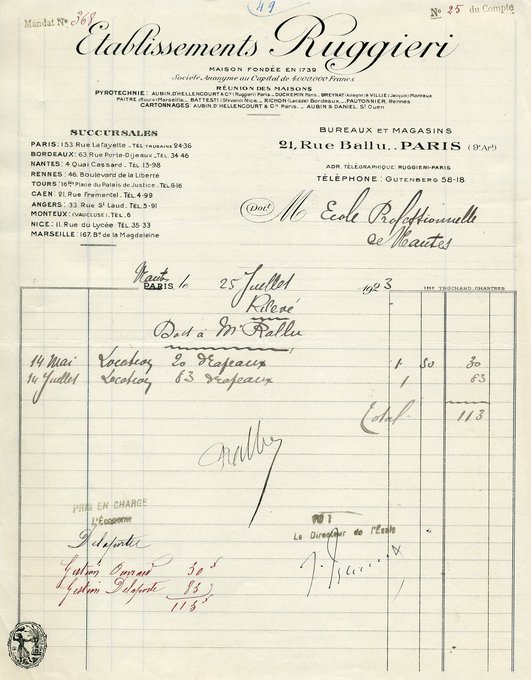 49
Mandat No 368
No 25 du Compte
Etablissements Ruggieri
MAISON FONDÉE EN 1739
Société Anonyme au Capital de 4.000.000 Francs
RÉUNION DES MAISONS
PYROTECHNIE : AUBIN, D'HELLENCOURT & Cie (Ruggieri) Paris _ DUCHEMIN Paris _ BREYNAT (Aulagne) & VILLIE (Jacquin) Monteux
PAITRE (Faure) Marseille _ BATTESTI (Stevano) Nice _ RICHON (Lacaze) Bordeaux _ PAUTONNIER, Rennes
CARTONNAGES : AUBIN, D'HELLENCOURT & Cie Paris _ AUBIN & DANIEL, St Ouen
SUCCURSALES
PARIS : 153, Rue Lafayette _ TÉL. TRUDAINE 24-36
BORDEAUX : 63, Rue Porte-Dijeaux _ TÉL. 34-46
NANTES : 4, Quai Cassard _ TÉL. 13-98
RENNES : 46, Boulevard de la Liberté
TOURS : 16bis Place du Palais de Justice _ TÉL. 6-16
CAEN : 21, Rue Frementel _ TÉL. 4-99
ANGERS : 33, Rue St Laud _ TÉL. 5-91
MONTEUX : (VAUCLUSE) _ TÉL. 6
NICE : 11, Rue du Lycée _ TÉL. 35-33
MARSEILLE : 167, Bd de la Magdeleine
BUREAUX ET MAGASINS
21, Rue Ballu _ PARIS (9e Arrt)
ADR. TÉLÉGRAPHIQUE : RUGGIERI-PARIS
TÉLÉPHONE : GUTENBERG 58-18
Doit M Ecole Professionnelle
de Nantes
Nantes
PARIS, le 25 Juillet 1923
IMP. TROCHARD, CHARTRES
Relevé
Doit à Mr Rallu
14 Mai Location 20 drapeaux 1 50 30
14 Juillet Location 83 drapeaux 1 83
Total 113
Rallu
PRIS EN CHARGE
L'Économe
Le Directeur de l'Ecole
Delaporte
Gestion 30
Gestion Delaporte 83
113